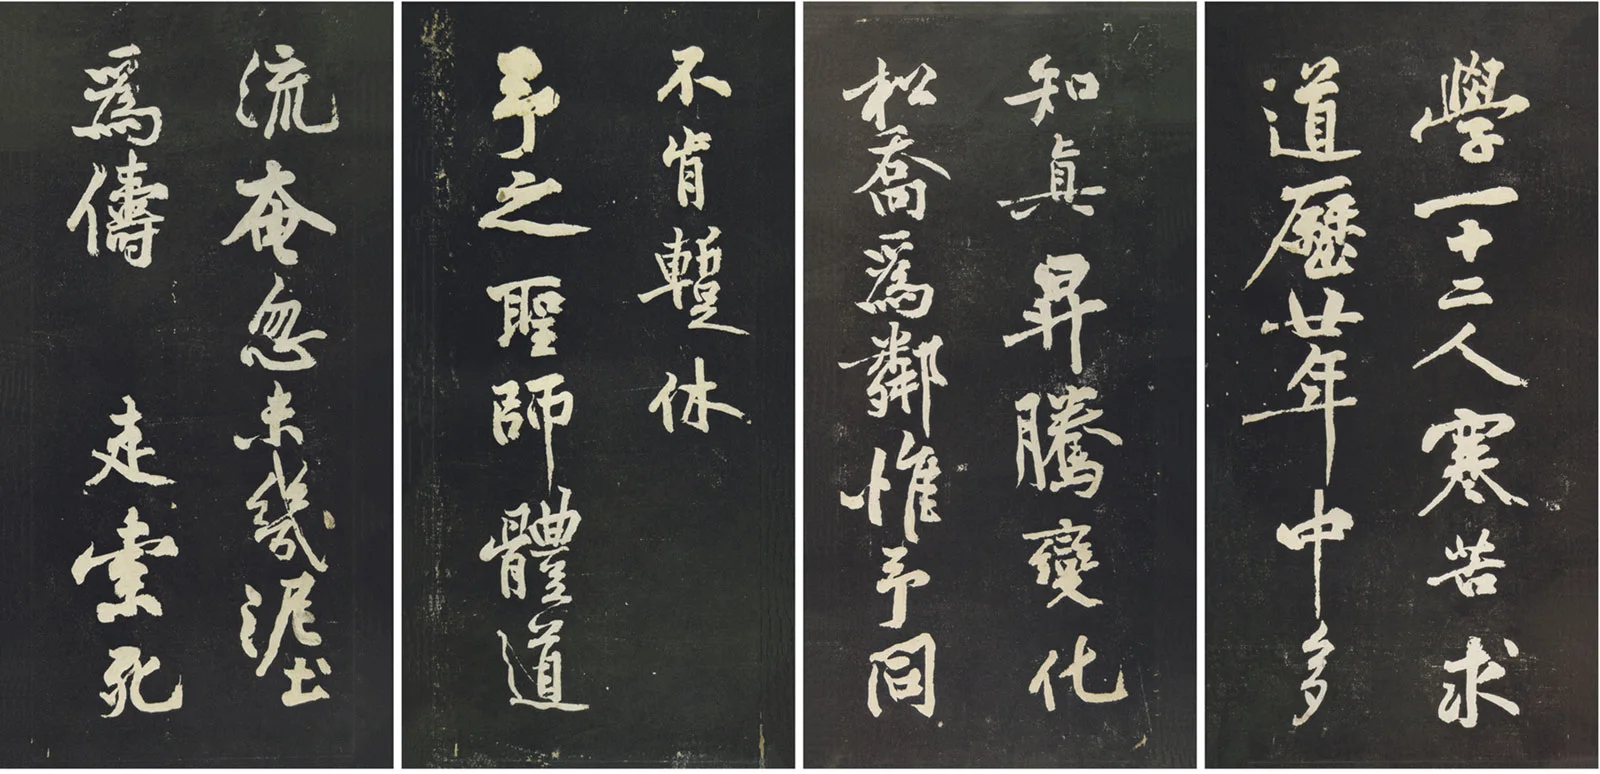 學一十二人寒苦求
道歷廿年中多
知真昇騰變化
松喬爲鄰惟予同
不肯蹔休
予之聖師體道
流奄忽未幾泥土
爲儔 走索死